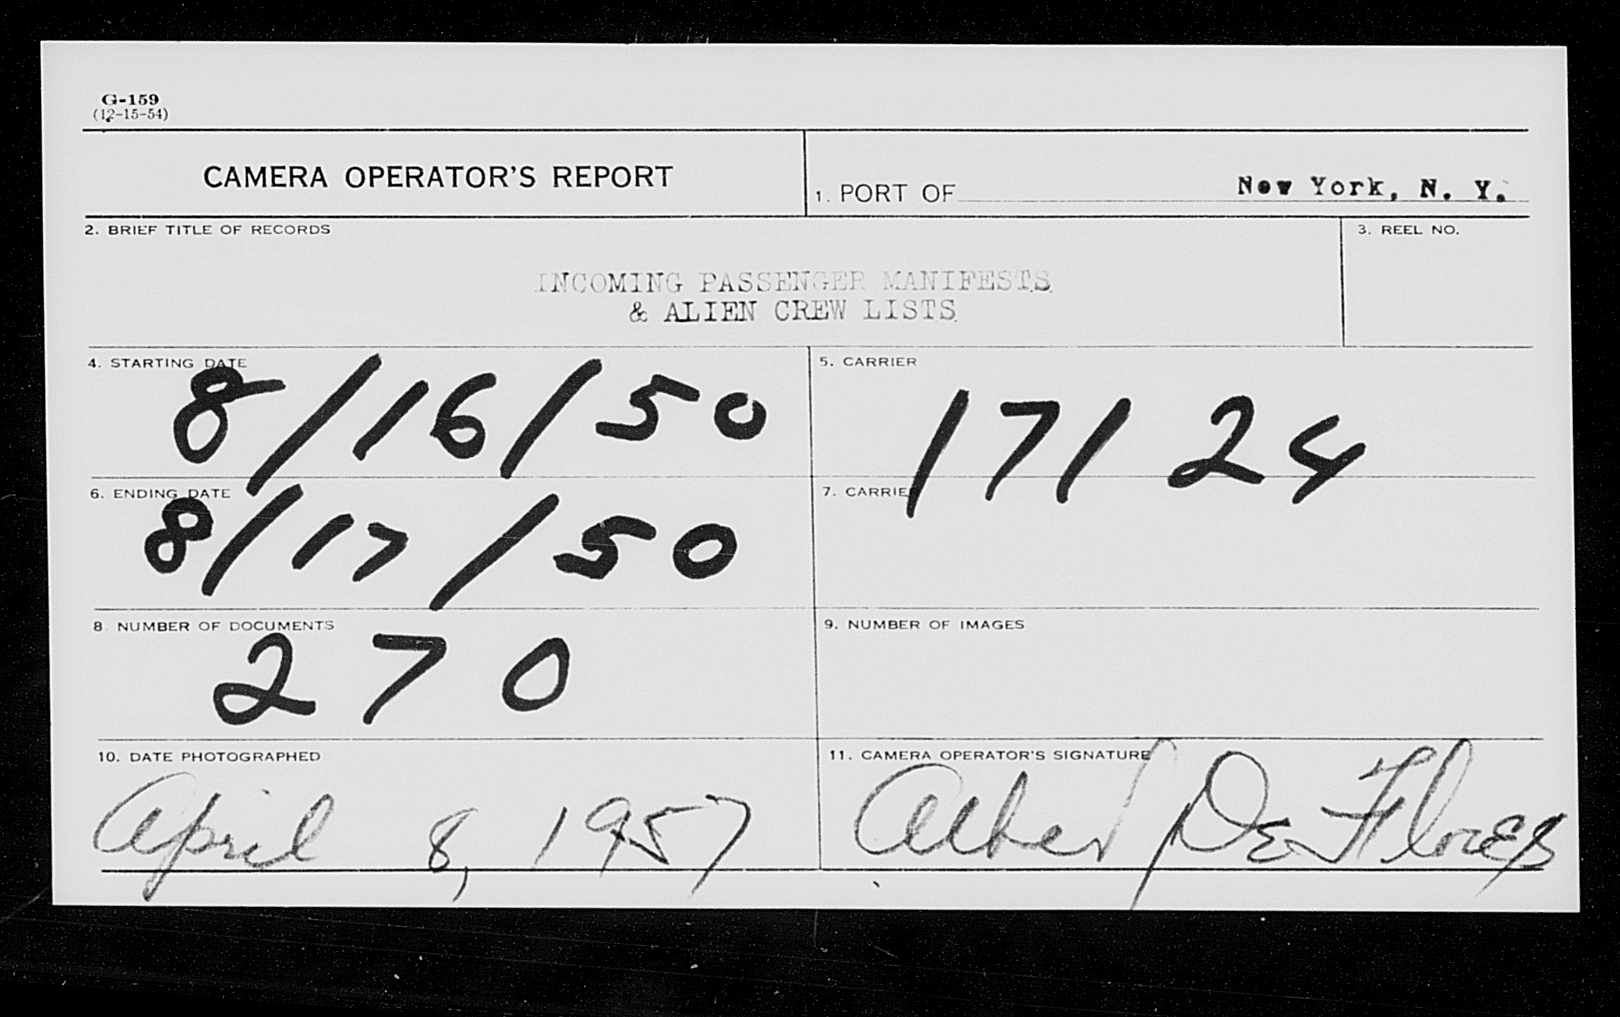 G-159
(12-15-54)
CAMERA OPERATOR'S REPORT
1. PORT OF New York, N. Y.
2. BRIEF TITLE OF RECORDS
3. REEL NO.
INCOMING PASSENGER MANIFESTS
& ALIEN CREW LISTS
4. STARTING DATE
8/16/50
5. CARRIER
17124
6. ENDING DATE
8/17/50
7. CARRIER
8. NUMBER OF DOCUMENTS
270
9. NUMBER OF IMAGES
10. DATE PHOTOGRAPHED
April 8, 1957
11. CAMERA OPERATOR'S SIGNATURE
Albert De Flores